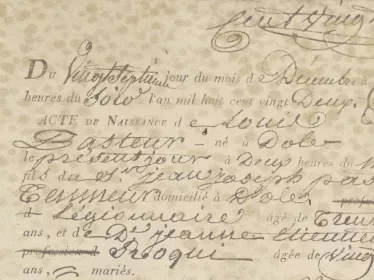 Cent Ving
9
Du Vingt Septieme jour du mois de Décembre à
heures du Soir l'an mil huit cent vingt Deux.
ACTE DE NAISSANCE de Louis
Pasteur – né à Dole
le présent jour à Deux heures du
fils du Sr. jean joseph pas
Tanneur domicilié à Dole
d Légionnaire âgé de Trent
ans, et de De jeanne Etiennet
profession d Roqui âgée de Ving
ans, mariés.